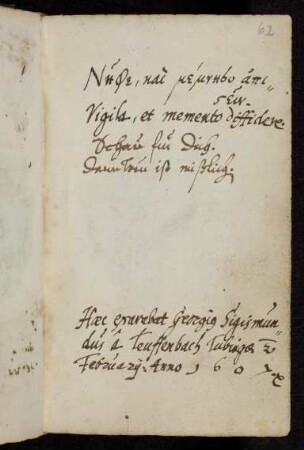 62
Νῆφε, καὶ μέμνησο ἀπι-
ςεῖν.
Vigila, et memento diffidere.
Schau für dich.
dann treu ist mißlich.
Hæc exarabat Georgiꝰ Sigismun-
dus â Teuffenbach Tubingæ 2
Februarij. Anno 1607